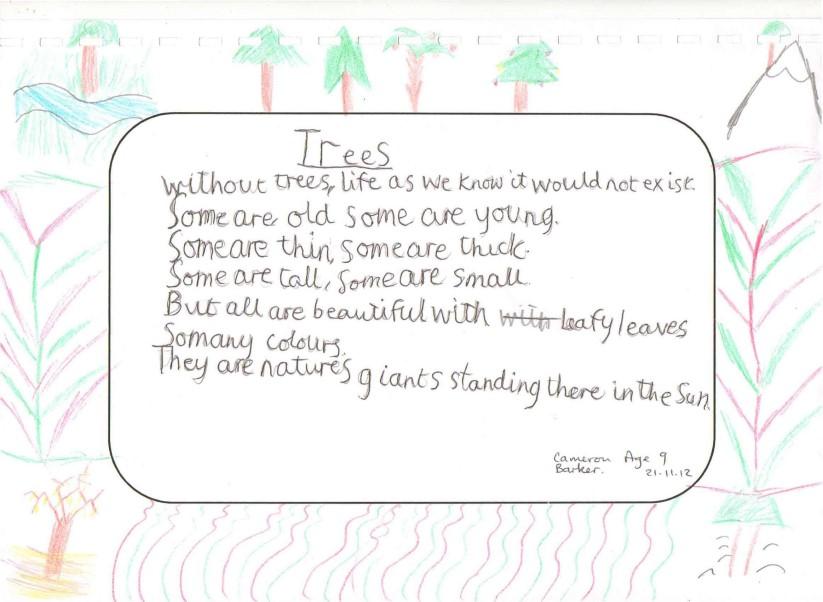 Trees
without trees, life as we know it would not exist.
Some are old some are young.
Some are thin, some are thick.
Some are tall, some are small
But all are beautiful with with leafy leaves
So many colours.
They are natures giants standing there in the Sun.
Cameron Age 9
Barker. 21.11.12